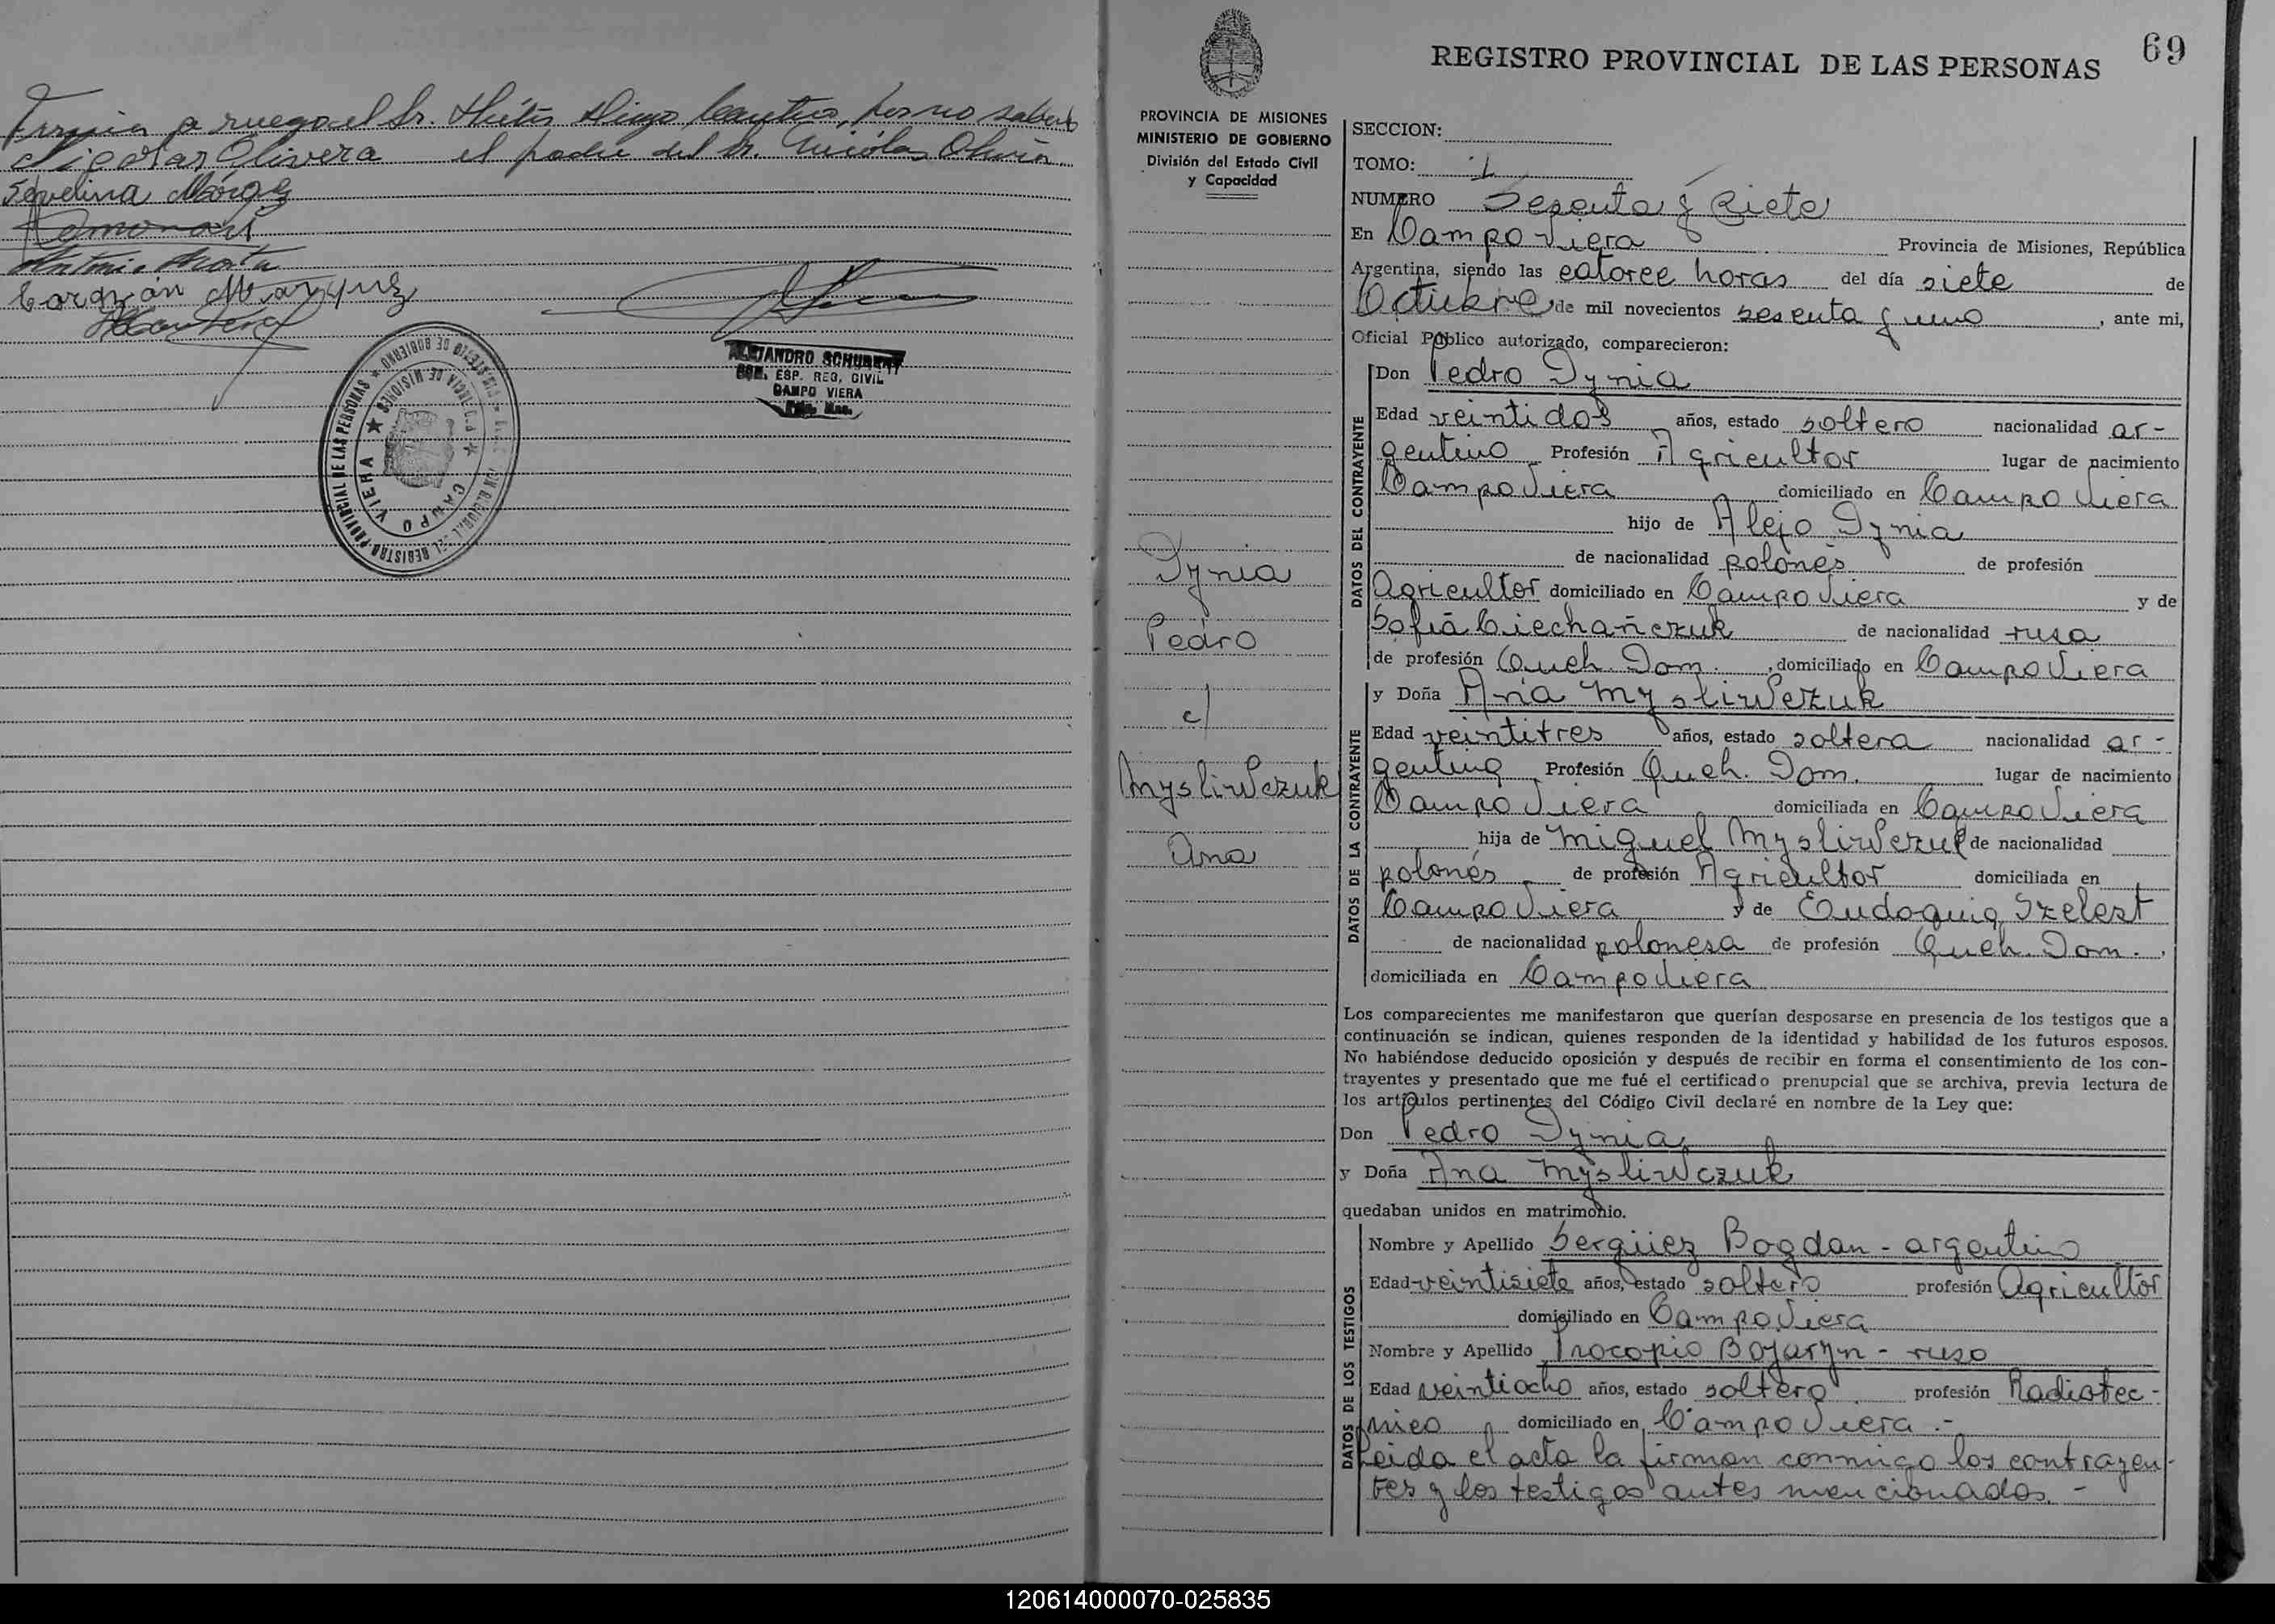 Firma a ruego el Sr. por no saber
Nicolas Olivera el padre del Sr. Nicolás Olivera
Antonio Acosta
ALEJANDRO SCHUBERT
ESP. REG. CIVIL
CAMPO VIERA
REGISTRO PROVINCIAL DE LAS PERSONAS
69
PROVINCIA DE MISIONES
MINISTERIO DE GOBIERNO
División del Estado Civil
y Capacidad
Tynia
Pedro
c/
Mysliwczuk
Ana
SECCION:
TOMO: 1
NUMERO Sesenta y Siete
En Campo Viera Provincia de Misiones, República
Argentina, siendo las catorce horas del día siete de
Octubre de mil novecientos sesenta y uno, ante mi,
Oficial Público autorizado, comparecieron:
DATOS DEL CONTRAYENTE
Don Pedro Tynia
Edad veintidos años, estado soltero nacionalidad ar-
gentino Profesión Agricultor lugar de nacimiento
Campo Viera domiciliado en Campo Viera
hijo de Alejo Tynia
de nacionalidad polonés de profesión
Agricultor domiciliado en Campo Viera y de
Sofia Ciechañczuk de nacionalidad rusa
de profesión Queh. Dom., domiciliado en Campo Viera
DATOS DE LA CONTRAYENTE
y Doña Ana Mysliwczuk
Edad veintitres años, estado soltera nacionalidad ar-
gentina Profesión Queh. Dom. lugar de nacimiento
Campo Viera domiciliada en Campo Viera
hija de Miguel Mysliwczuk de nacionalidad
polonés de profesión Agricultor domiciliada en
Campo Viera y de Eudoquia Szelest
de nacionalidad polonesa de profesión Queh. Dom.,
domiciliada en Campo Viera
Los comparecientes me manifestaron que querían desposarse en presencia de los testigos que a
continuación se indican, quienes responden de la identidad y habilidad de los futuros esposos.
No habiéndose deducido oposición y después de recibir en forma el consentimiento de los con-
trayentes y presentado que me fué el certificado prenupcial que se archiva, previa lectura de
los artículos pertinentes del Código Civil declaré en nombre de la Ley que:
Don Pedro Tynia
y Doña Ana Mysliwczuk
quedaban unidos en matrimonio.
DATOS DE LOS TESTIGOS
Nombre y Apellido Sergüiez Bogdan - argentino
Edad veintisiete años, estado soltero profesión Agricultor
domiciliado en Campo Viera
Nombre y Apellido Procopio Bojaryn - ruso
Edad veintiocho años, estado soltero profesión Radiotec-
nico domiciliado en Campo Viera.-
Leida el acta la firman conmigo los contrayen-
tes y los testigos antes mencionados.-
120614000070-025835